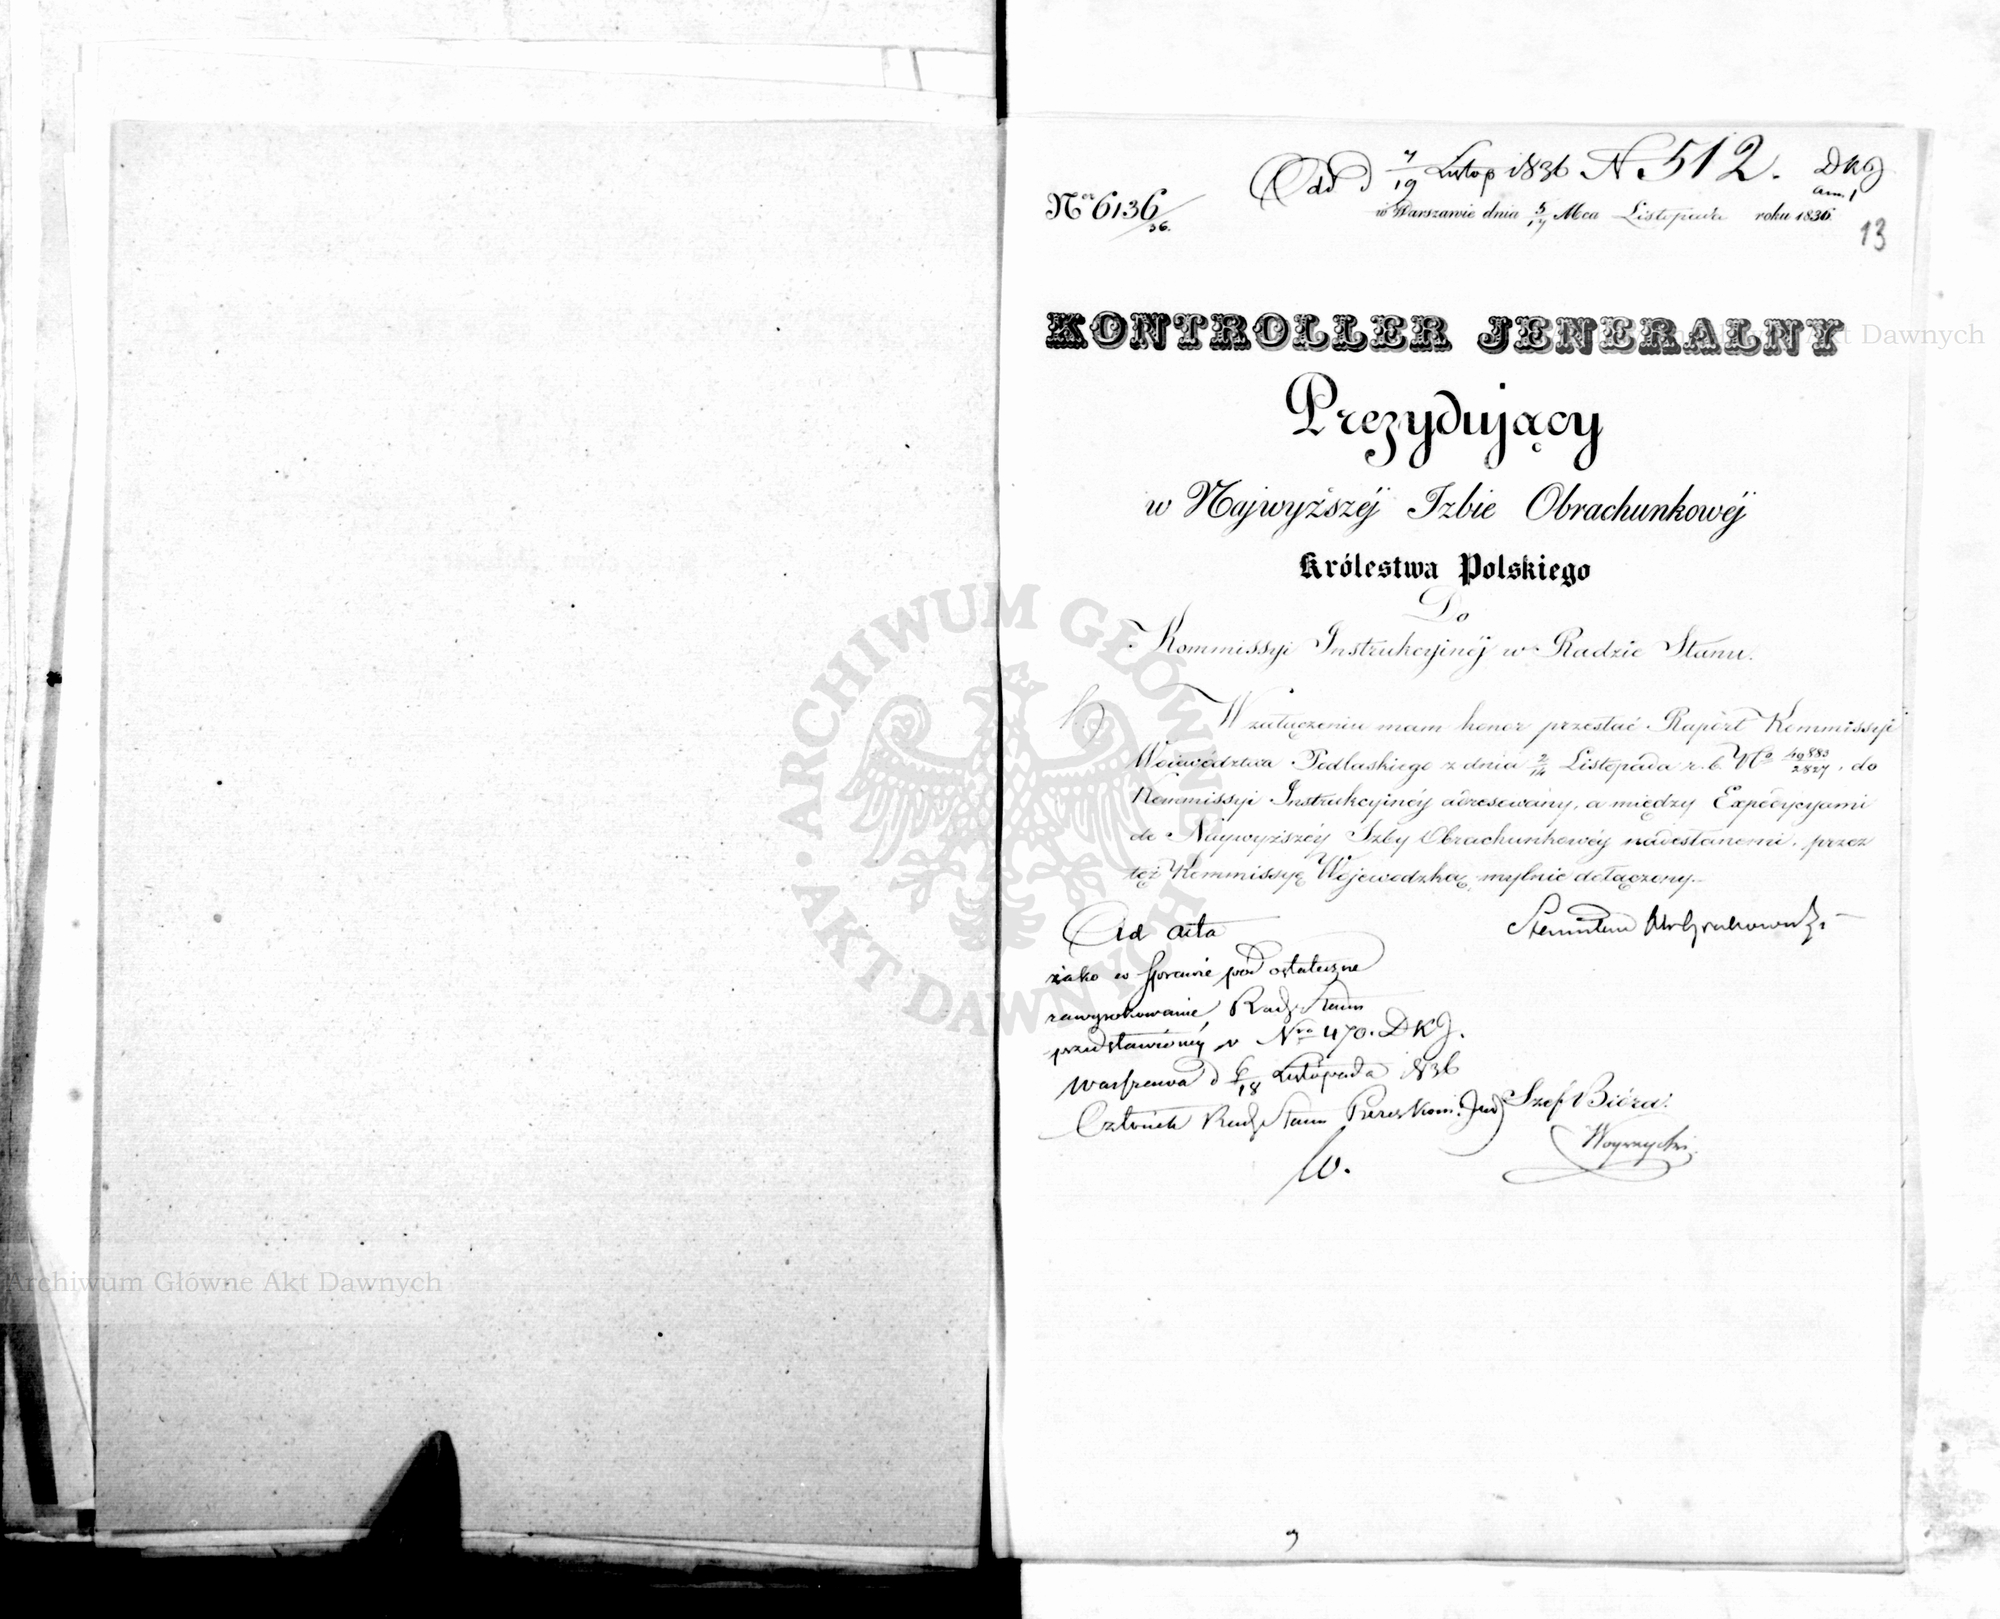 Odd d 7/19 Listop 1836 N. 512. DKJ
ann. 1
Nro 6136/36.
w Warszawie dnia 5/17 Mca Listopada roku 1836.
13
KONTROLLER JENERALNY
Prezydujący
w Najwyższéj Izbie Obrachunkowéj
Królestwa Polskiego
Do
Kommissyi Instrukcyinéj w Radzie Stanu.
W załączeniu mam honor przesłać Raport Kommissyi
Woiewództwa Podlaskiego z dnia 2/14 Listopada r. b. No 49883/2827, do
Kommissyi Instrukcyinéy adresowány, a między Expedycyami
do Naywyższéy Izby Obrachunkowéy nadesłanemi, przez
też Kommissyę Wojewodzką, mylnie dołączony.
Ad acta
iako w sprawie pod ostateczne
zawyrokowanie Rady Stanu
przedstawionéy w Nro 470. DKJ.
Warszawa d 6/18 Listopada 1836
Członek Rady Stanu Prezes Kom. Ins
Szef Bióra.
W.
ARCHIWUM GŁÓWNE AKT DAWNYCH
Archiwum Główne Akt Dawnych
Akt Dawnych